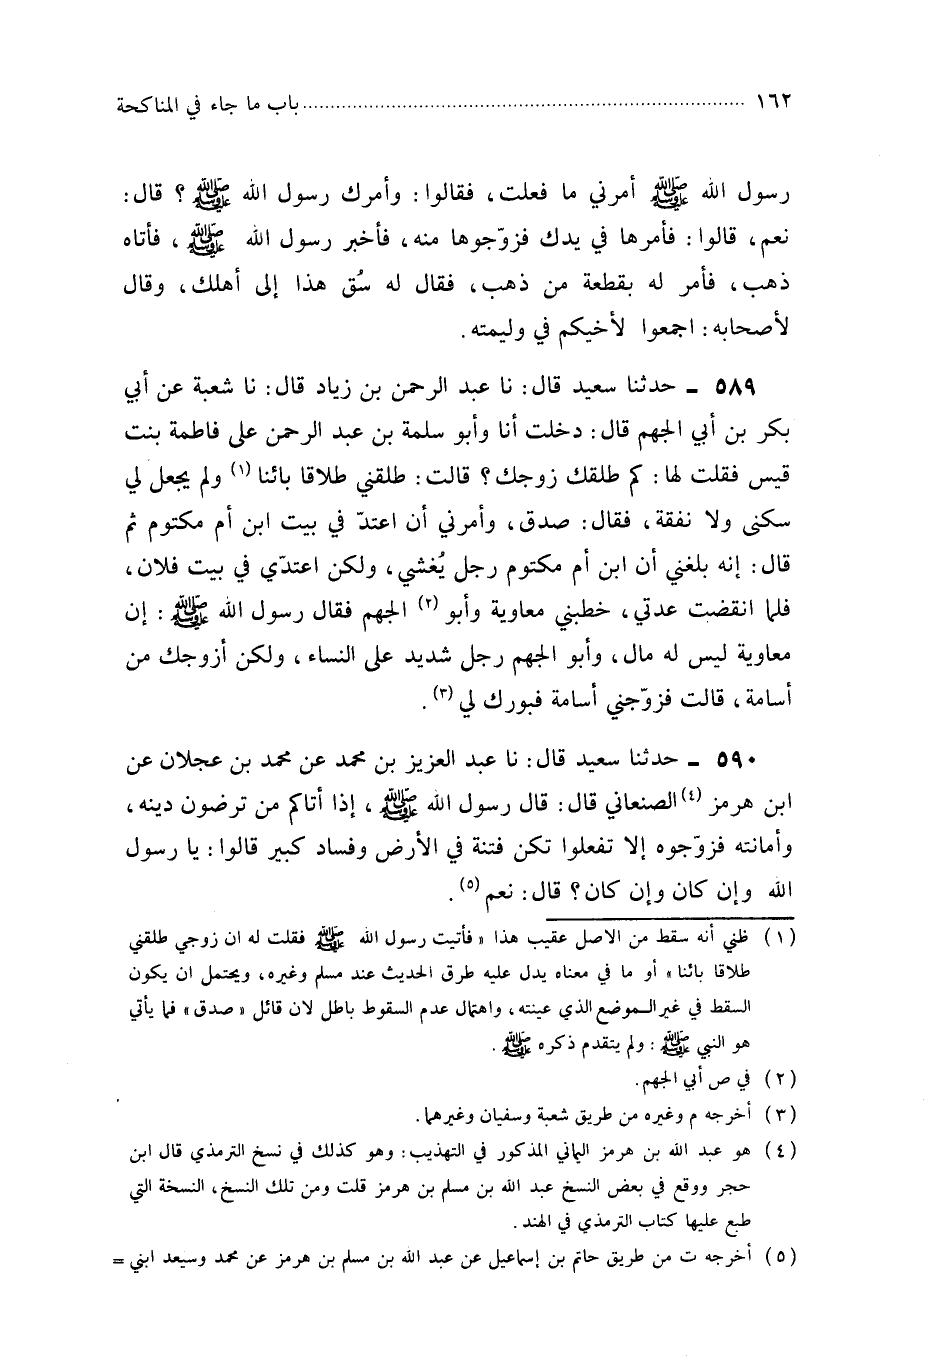 ١٦٢ ........................ باب ما جاء في المناكحة
رسول الله ﷺ أمرني ما فعلت، فقالوا: وأمرك رسول الله ﷺ ؟ قال:
نعم، قالوا: فأمرها في يدك فزوّجوها منه، فأخبر رسول الله ﷺ ، فأتاه
ذهب، فأمر له بقطعة من ذهب، فقال له سُق هذا إلى أهلك، وقال
لأصحابه: اجمعوا لأخيكم في وليمته.
٥٨٩ ـ حدثنا سعيد قال: نا عبد الرحمن بن زياد قال: نا شعبة عن أبي
بكر بن أبي الجهم قال: دخلت أنا وأبو سلمة بن عبد الرحمن على فاطمة بنت
قيس فقلت لها: كم طلقك زوجك؟ قالت: طلقني طلاقا بائنا (١) ولم يجعل لي
سكنى ولا نفقة، فقال: صدق، وأمرني أن اعتدّ في بيت ابن أم مكتوم ثم
قال: إنه بلغني أن ابن أم مكتوم رجل يُغشي، ولكن اعتدّي في بيت فلان،
فلما انقضت عدتي، خطبني معاوية وأبو (٢) الجهم فقال رسول الله ﷺ : إن
معاوية ليس له مال، وأبو الجهم رجل شديد على النساء، ولكن أزوجك من
أسامة، قالت فزوّجني أسامة فبورك لي (٣).
٥٩٠ ـ حدثنا سعيد قال: نا عبد العزيز بن محمد عن محمد بن عجلان عن
ابن هرمز (٤) الصنعاني قال: قال رسول الله ﷺ ، إذا أتاكم من ترضون دينه،
وأمانته فزوّجوه إلا تفعلوا تكن فتنة في الأرض وفساد كبير قالوا: يا رسول
الله وإن كان وإن كان؟ قال: نعم (٥).
(١) ظني أنه سقط من الاصل عقيب هذا « فأتيت رسول الله ﷺ فقلت له ان زوجي طلقني
طلاقا بائنا » أو ما في معناه يدل عليه طرق الحديث عند مسلم وغيره، ويحتمل ان يكون
السقط في غير الموضع الذي عينته، واهتمال عدم السقوط باطل لان قائل « صدق » فما يأتي
هو النبي ﷺ : ولم يتقدم ذكره ﷺ .
(٢) في ص أبي الجهم.
(٣) أخرجه م وغيره من طريق شعبة وسفيان وغيرهما.
(٤) هو عبد الله بن هرمز اليماني المذكور في التهذيب: وهو كذلك في نسخ الترمذي قال ابن
حجر ووقع في بعض النسخ عبد الله بن مسلم بن هرمز قلت ومن تلك النسخ، النسخة التي
طبع عليها كتاب الترمذي في الهند.
(٥) أخرجه ت من طريق حاتم بن إسماعيل عن عبد الله بن مسلم بن هرمز عن محمد وسيعد ابني =